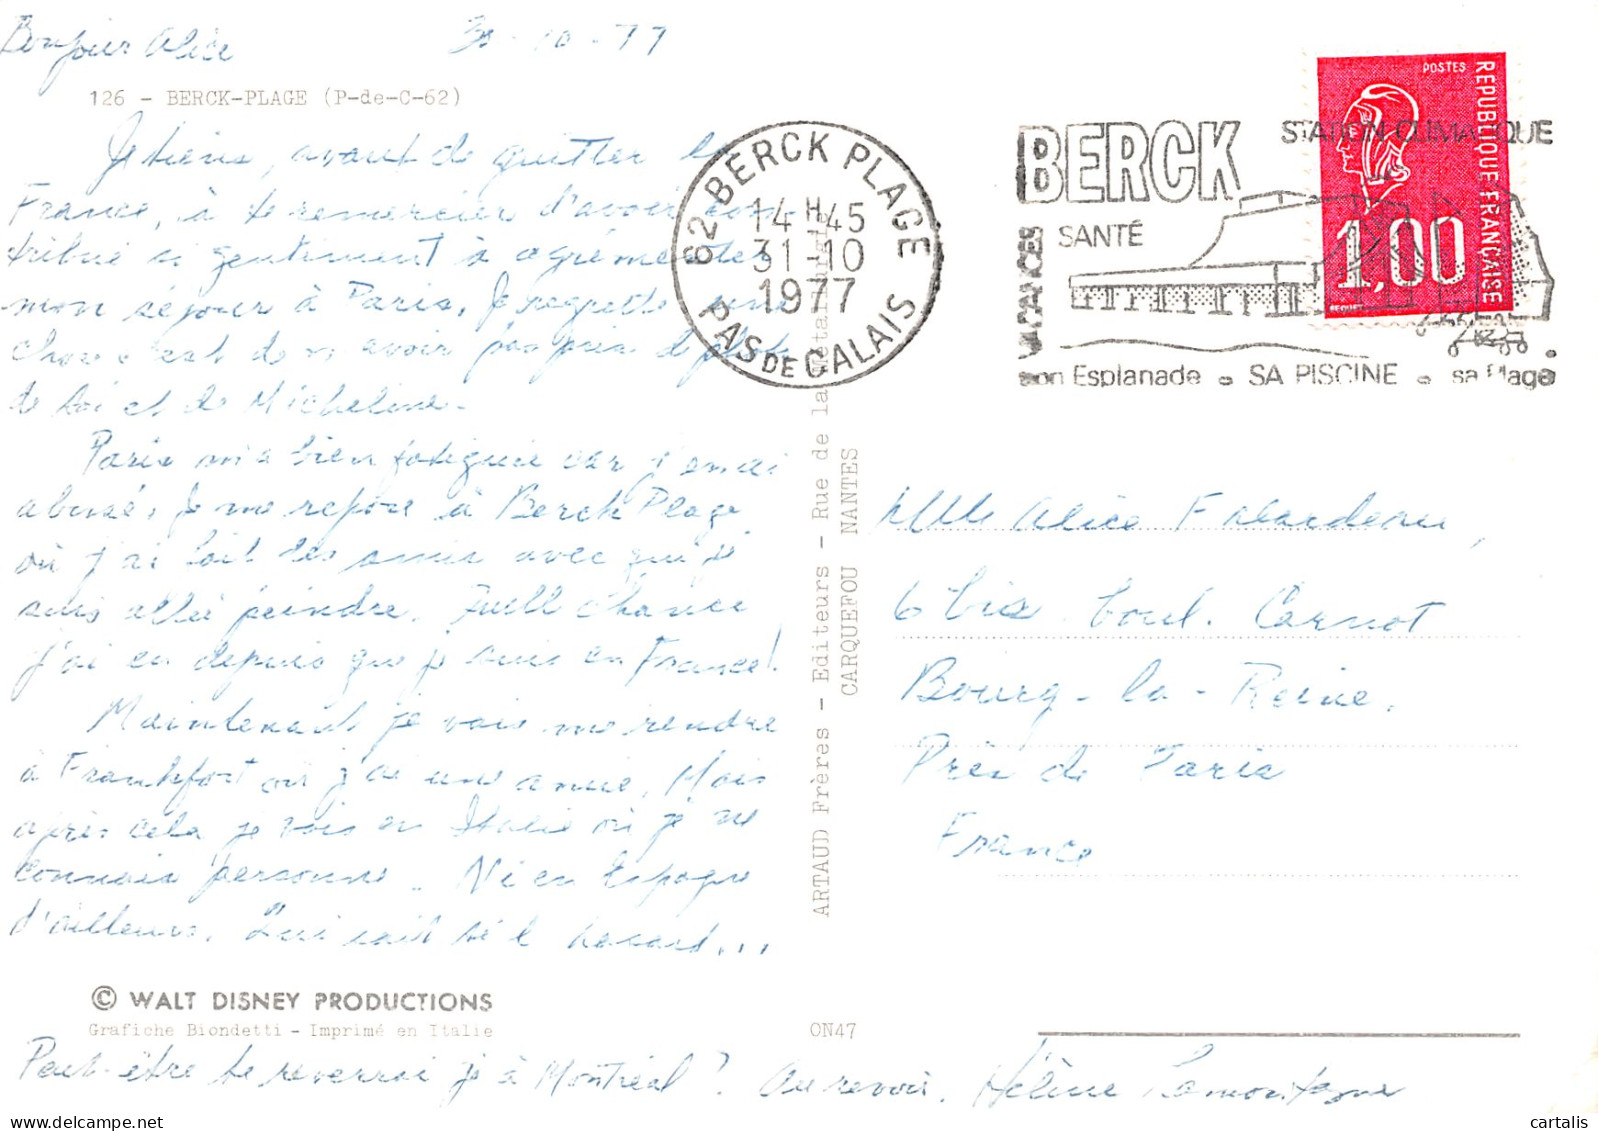 Bonjour Alice 30-10-77
126 - BERCK-PLAGE (P-de-C-62)
Je tiens, avant de quitter la
France, à te remercier d'avoir con
tribué si gentiment à agrémenter
mon séjour à Paris. Je regrette une
chose c'est de n'avoir pas pris de photo
de toi et de Micheline.
Paris m'a bien fatiguée car j'en ai
abusé. Je me repose à Berck Plage
où j'ai fait des amis avec qui je
suis allée peindre. Quelle chance
j'ai eu depuis que je suis en France!
Maintenant je vais me rendre
à Frankfort où j'ai une amie. Mais
après cela je vais en Italie où je ne
connais personne. Ni en Espagne
d'ailleurs. Qui sait si le hasard...
© WALT DISNEY PRODUCTIONS
Grafiche Biondetti - Imprimé en Italie
Peut-être te reverrai je à Montréal? Au revoir. Hélène Lamontagne
ARTAUD Frères - Editeurs - Rue de la Métallurgie
CARQUEFOU NANTES
ON47
62 BERCK PLAGE
14 H 45
31-10
1977
PAS DE CALAIS
BERCK
STATION CLIMATIQUE
SANTÉ
VACANCES
son Esplanade • SA PISCINE • sa Plage
POSTES
REPUBLIQUE FRANÇAISE
1,00
BEQUET
Mlle Alice Falardeau,
6 bis boul. Carnot
Bourg-la-Reine,
Près de Paris
France
cartalis